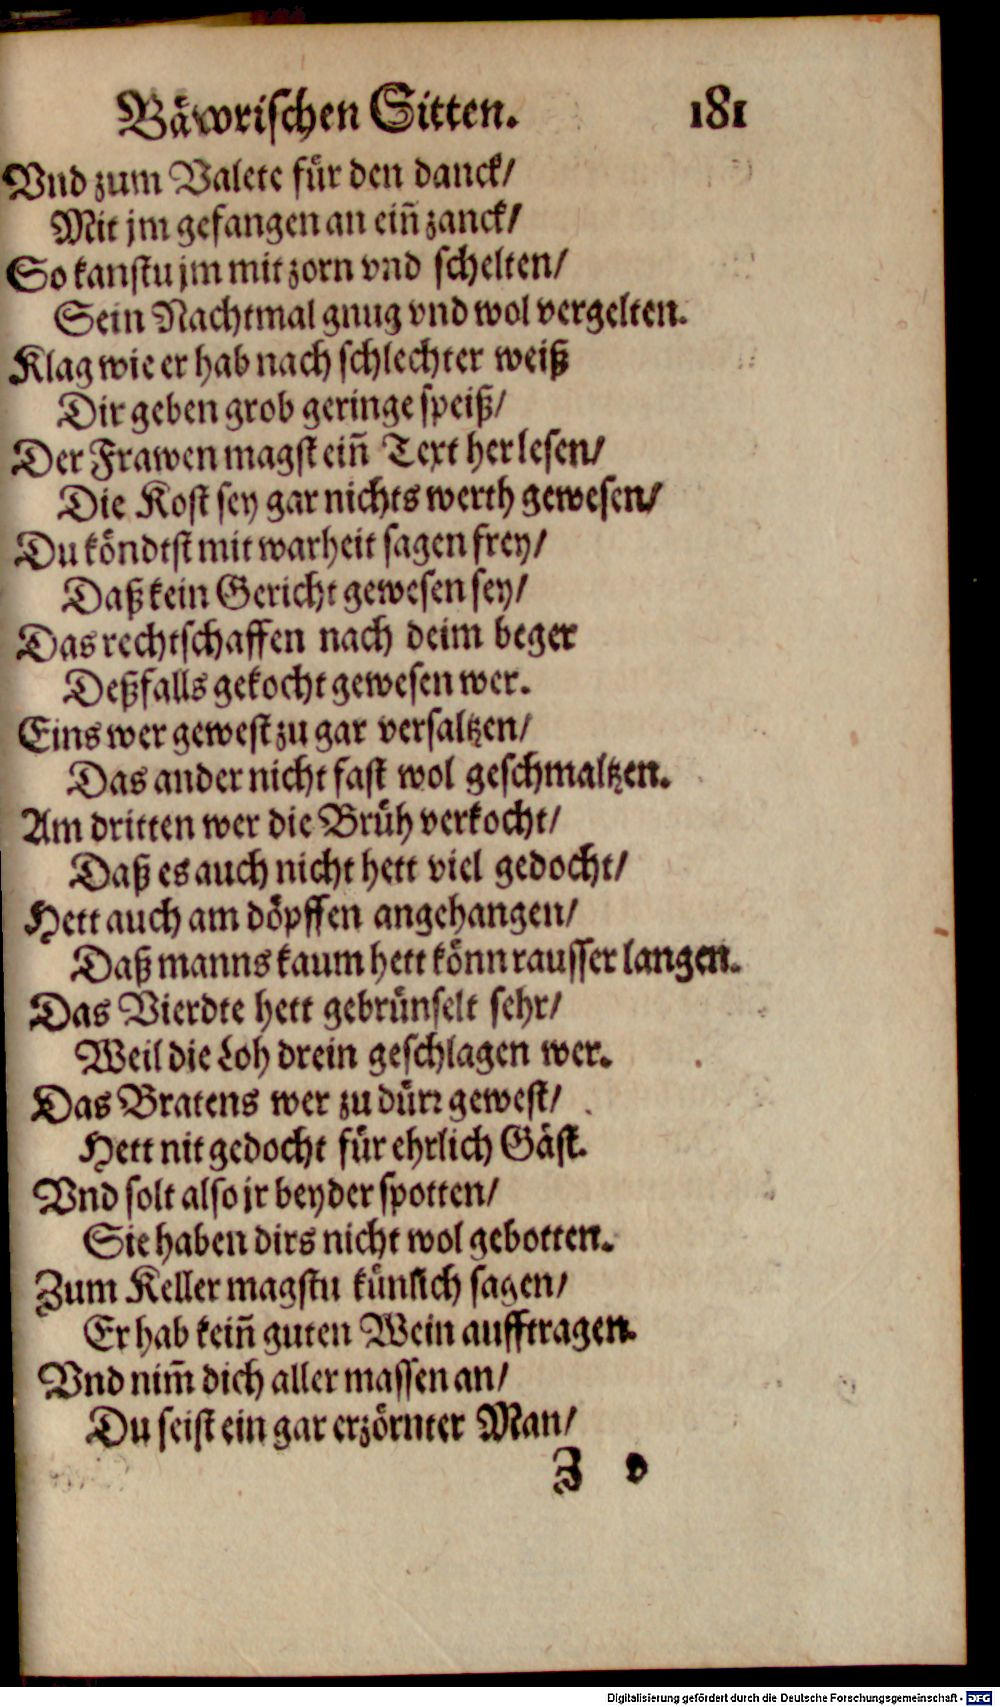 Bäwrischen Sitten. 181
Vnd zum Valete für den danck/
Mit jm gefangen an eiñ zanck/
So kanstu jm mit zorn vnd schelten/
Sein Nachtmal gnug vnd wol vergelten.
Klag wie er hab nach schlechter weiß
Dir geben grob geringe speiß/
Der Frawen magst eiñ Text her lesen/
Die Kost sey gar nichts werth gewesen/
Du köndtst mit warheit sagen frey/
Daß kein Gericht gewesen sey/
Das rechtschaffen nach deim beger
Deßfalls gekocht gewesen wer.
Eins wer gewest zu gar versaltzen/
Das ander nicht fast wol geschmaltzen.
Am dritten wer die Brüh verkocht/
Daß es auch nicht hett viel gedocht/
Hett auch am döpffen angehangen/
Daß manns kaum hett könn rausser langen.
Das Vierdte hett gebrünselt sehr/
Weil die Loh drein geschlagen wer.
Das Bratens wer zu dürr gewest/
Hett nit gedocht für ehrlich Gäst.
Vnd solt also jr beyder spotten/
Sie haben dirs nicht wol gebotten.
Zum Keller magstu künlich sagen/
Er hab keiñ guten Wein aufftragen.
Vnd nim̃ dich aller massen an/
Du seist ein gar erzörnter Man/
Z v
Digitalisierung gefördert durch die Deutsche Forschungsgemeinschaft - DFG